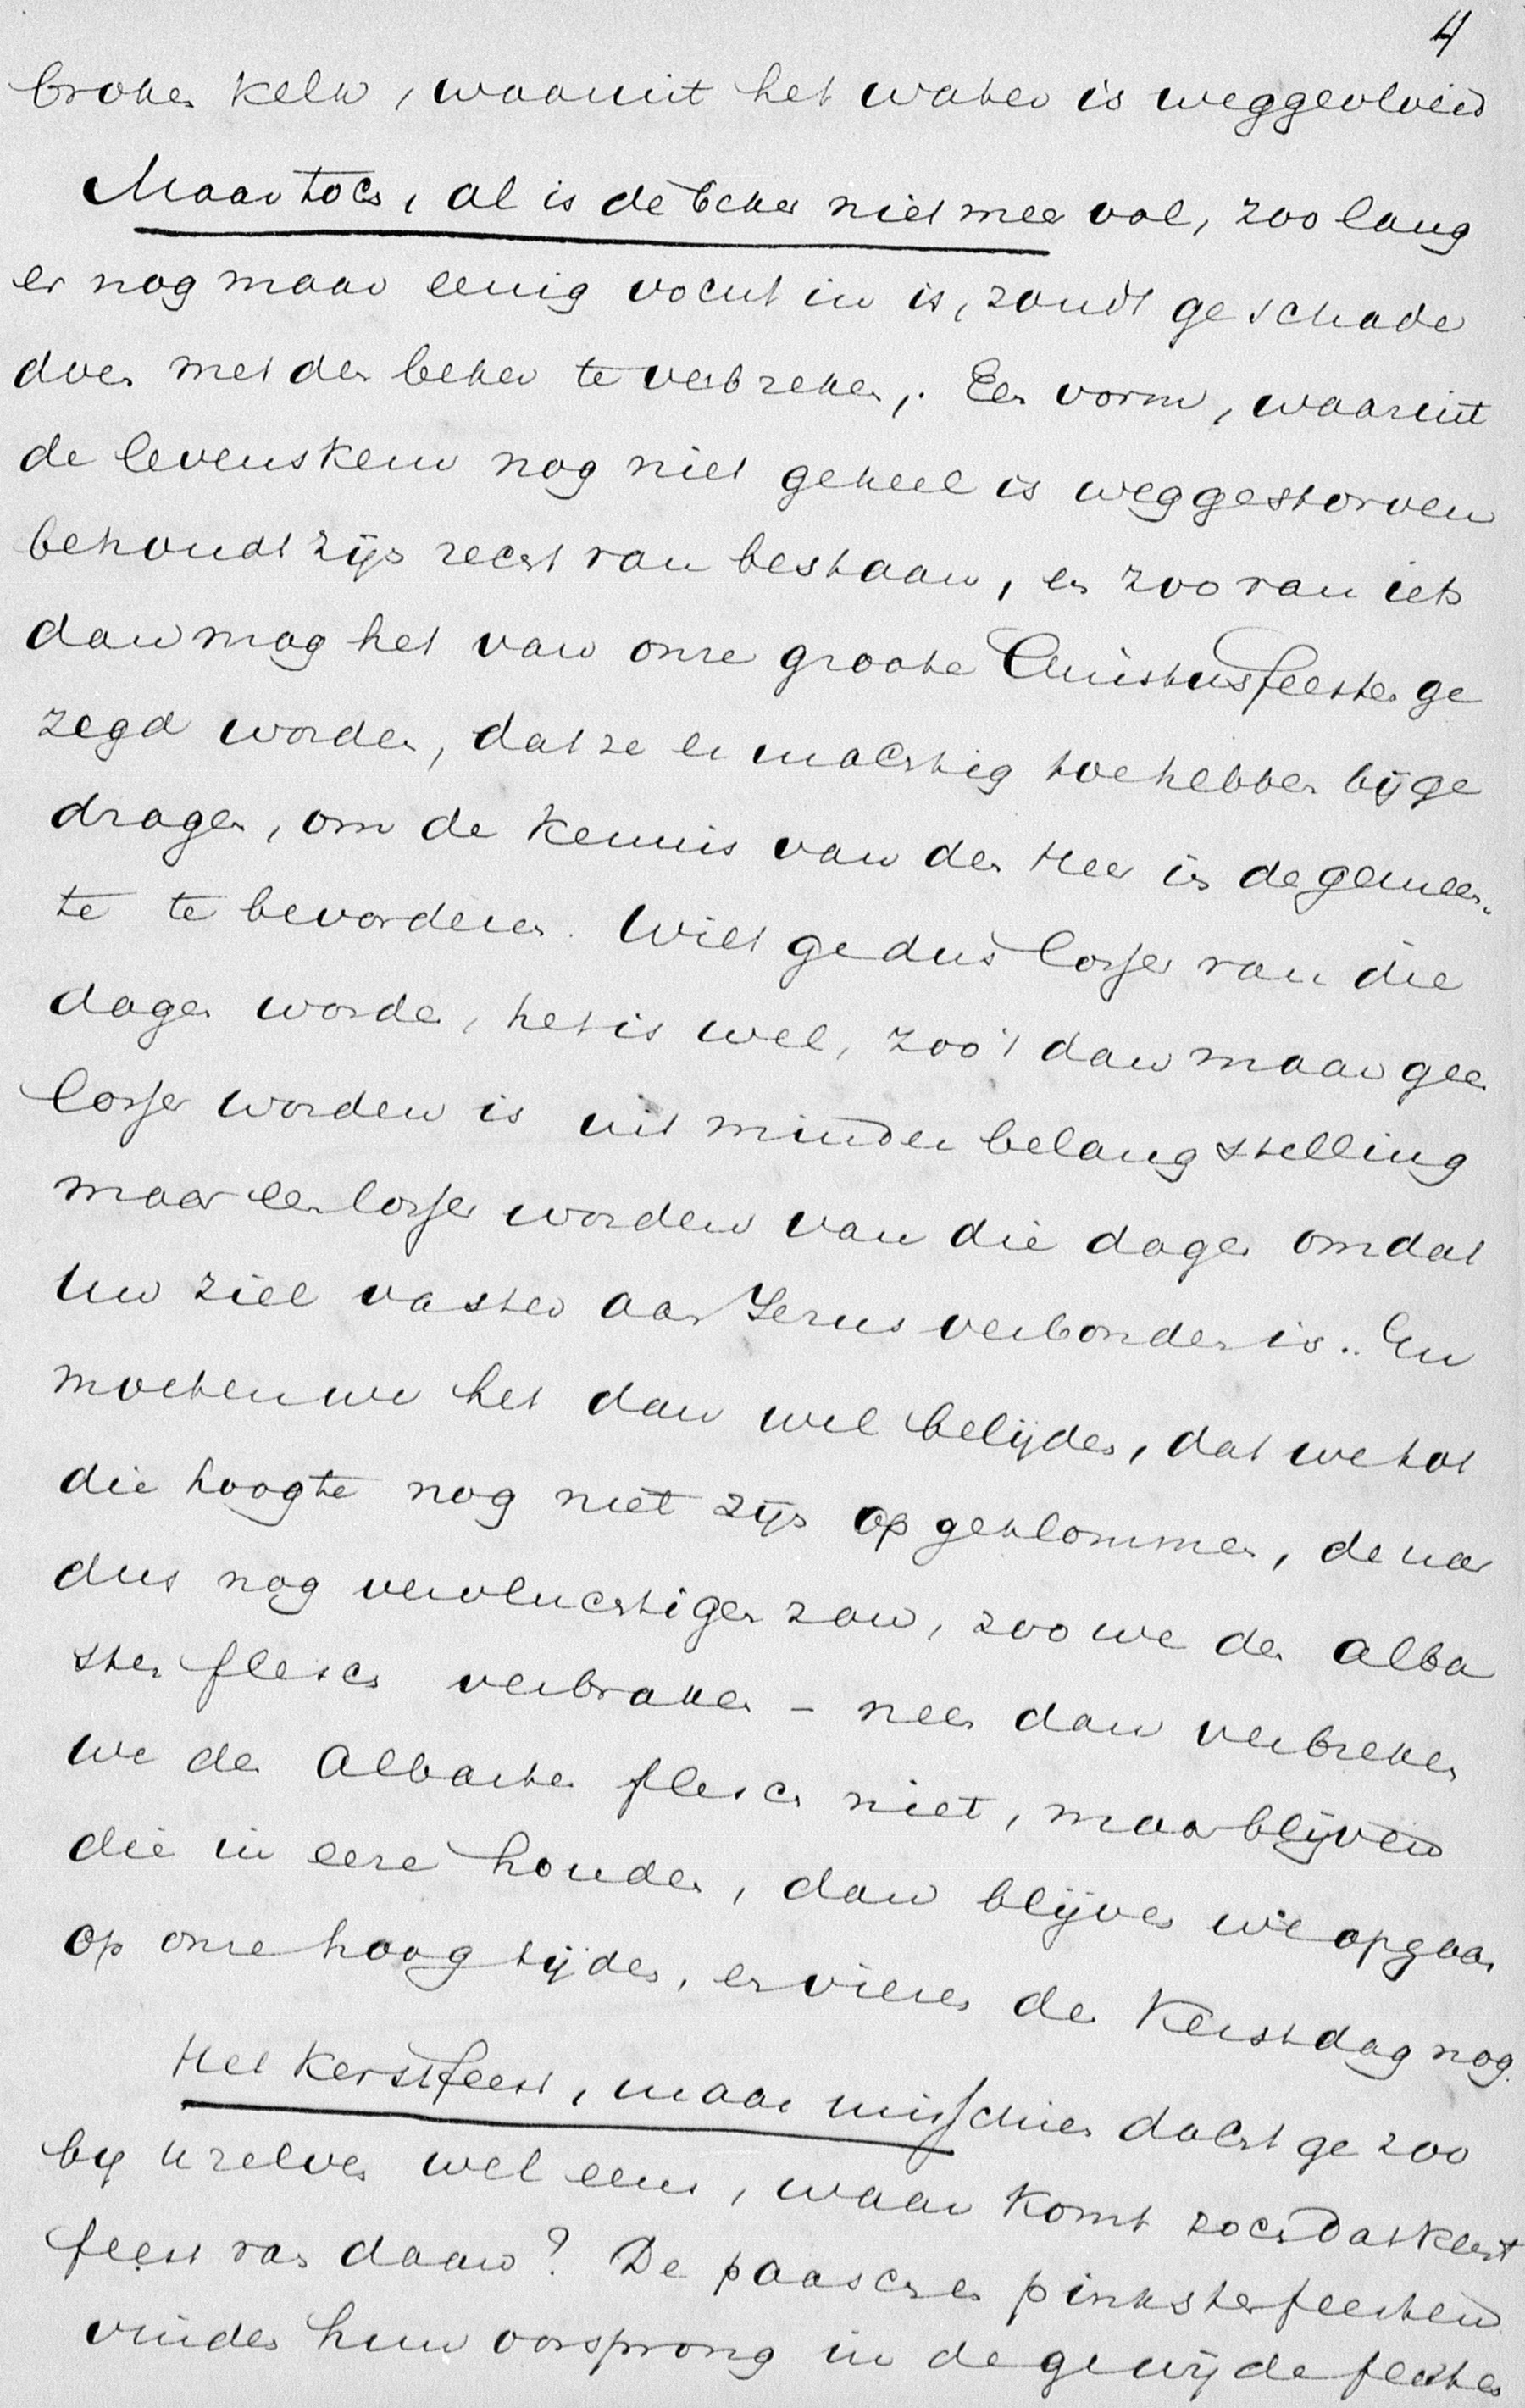 4
broken kelk, waaruit het water is weggevloeid
Maar toch, al is de beker niet meer vol, zoo lang
er nog maar eenig vocht in is, zoudt ge schade
doen met den beker te verbreken,. Een vorm, waaruit
de levenskern nog niet geheel is weggestorven
behoudt zijn recht van bestaan, en zoo van iets
dan mag het van onze groote Christusfeesten ge
zegd worden, dat ze er machtig toe hebben bijge
dragen, om de kennis van den Heer in de gemeen-
te te bevorderen. Wilt ge dus losser van die
dagen worden, het is wel, zoo 't dan maar geen
losser worden is uit minder belangstelling
maar een losser worden van die dagen omdat
Uw ziel vaster aan Jezus verbonden is.. En
moeten we het dan wel belijden, dat we tot
die hoogte nog niet zijn opgeklommen, de nar
dus nog vervluchtigen zou, zoo we den alba
sten flesch verbraken - neen dan verbreken
we den albasten flesch niet, maar blijven
die in eere houden, dan blijven we opgaan
op onze hoogtijden, en vieren den Kerstdag nog.
Het Kerstfeest, maar misschien dacht ge zoo
bij u zelven wel eens, waar komt toch dat Kerst
feest van daan? De paasch en pinksterfeesten
vinden hun oorsprong in de gewijde feesten